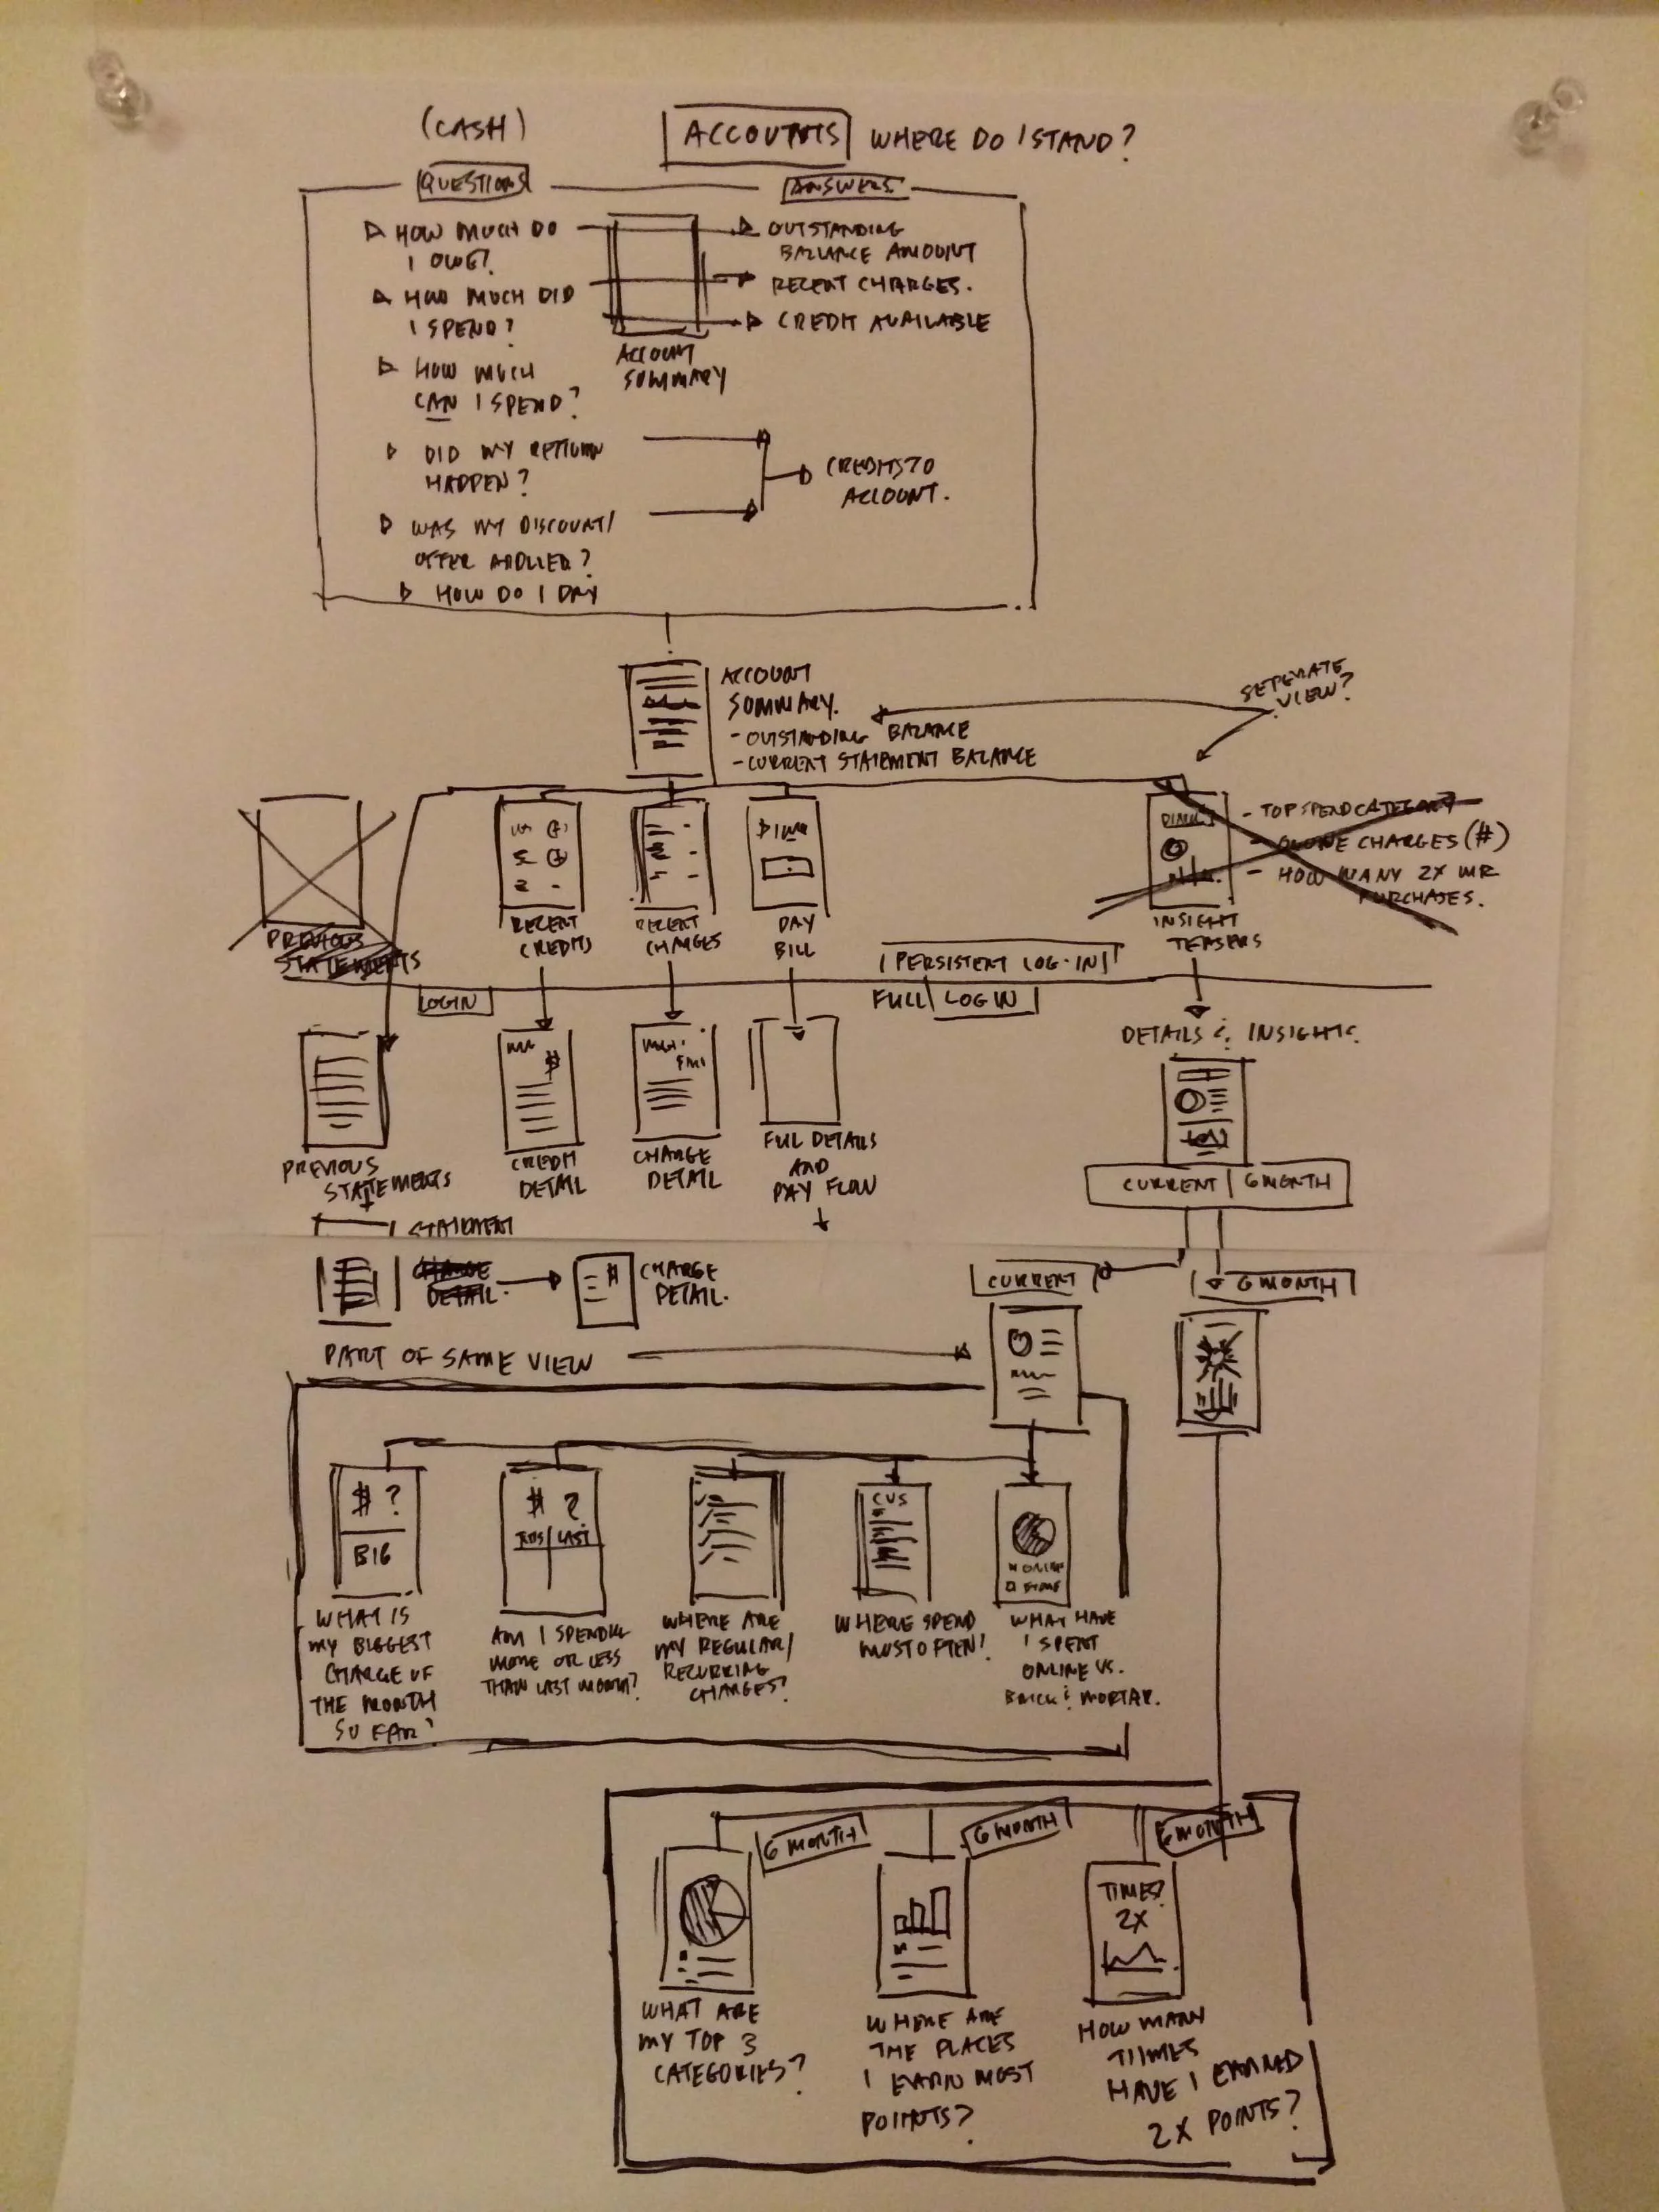 (CASH)
ACCOUNTS WHERE DO I STAND?
QUESTIONS
ANSWERS
HOW MUCH DO
I OWE?
HOW MUCH DID
I SPEND?
HOW MUCH
CAN I SPEND?
DID MY RETURN
HAPPEN?
WAS MY DISCOUNT/
OFFER APPLIED?
HOW DO I PAY
ACCOUNT
SUMMARY
OUTSTANDING
BALANCE AMOUNT
RECENT CHARGES.
CREDIT AVAILABLE
CREDITS TO
ACCOUNT.
ACCOUNT
SUMMARY.
- OUTSTANDING BALANCE
- CURRENT STATEMENT BALANCE
SEPERATE
VIEW?
PREVIOUS
STATEMENTS
RECENT
CREDITS
RECENT
CHARGES
PAY
BILL
INSIGHT
TEASERS
- TOP SPEND CATEGORY
- CHARGES (#)
- HOW MANY 2X MR
PURCHASES.
PERSISTENT LOG-IN
LOGIN
FULL LOG IN
PREVIOUS
STATEMENTS
CREDIT
DETAIL
$
CHARGE
DETAIL
FULL DETAILS
AND
PAY FLOW
DETAILS & INSIGHTS
CURRENT | 6 MONTH
STATEMENT
CHARGE
DETAIL.
CHARGE
DETAIL.
CURRENT
6 MONTH
PART OF SAME VIEW
$ ?
BIG
WHAT IS
MY BIGGEST
CHARGE OF
THE MONTH
SO FAR?
$ ?
THIS | LAST
AM I SPENDING
MORE OR LESS
THAN LAST MONTH?
WHERE ARE
MY REGULAR/
RECURRING
CHARGES?
CVS
WHERE SPEND
MOST OFTEN?
ONLINE
STORE
WHAT HAVE
I SPENT
ONLINE VS.
BRICK & MORTAR.
6 MONTH
6 MONTH
6 MONTH
WHAT ARE
MY TOP 3
CATEGORIES?
WHERE ARE
THE PLACES
I EARN MOST
POINTS?
TIMES?
2X
HOW MANY
TIIMES
HAVE I EARNED
2X POINTS?